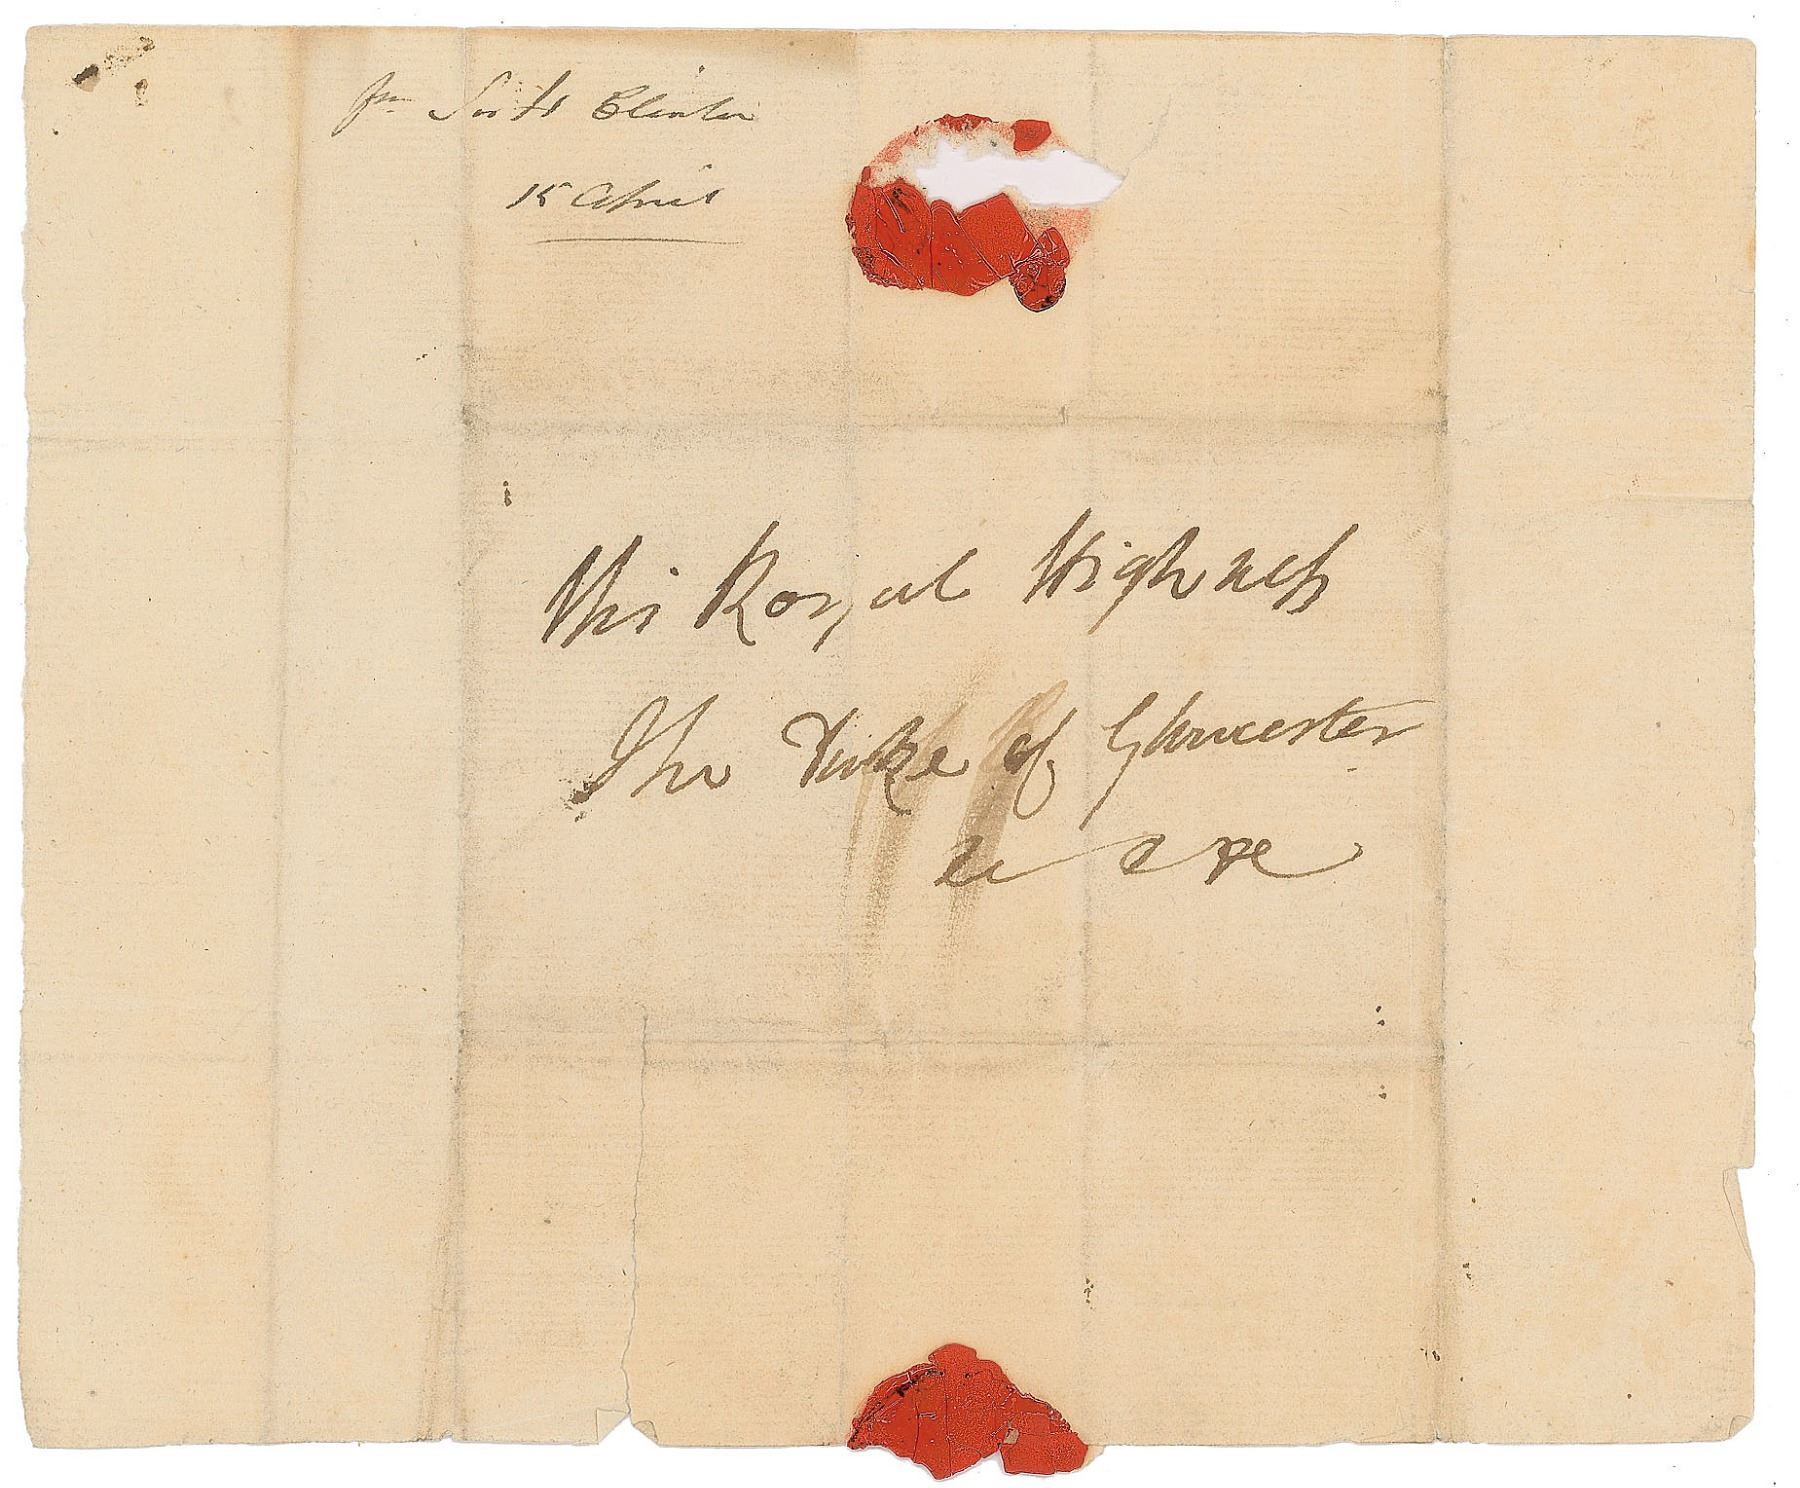 fm Sir H Clinton
15 April
His Royal Highness
The Duke of Gloucester